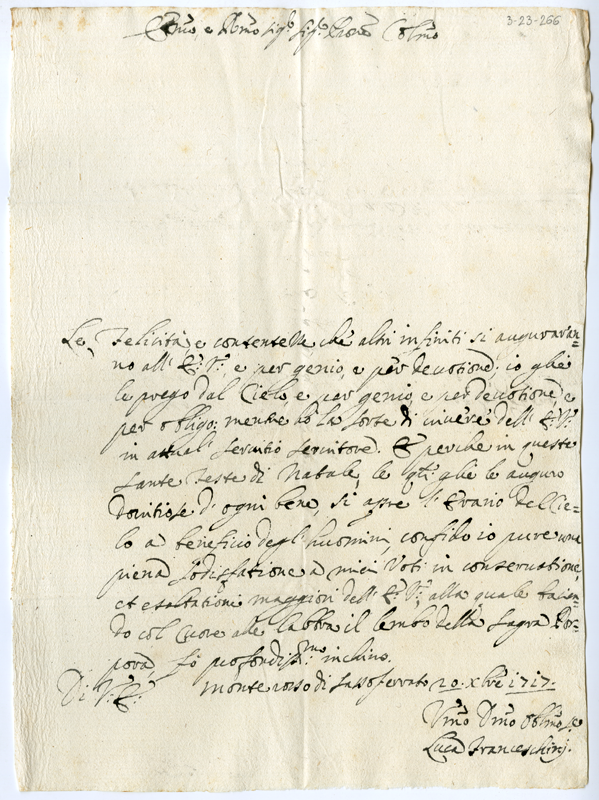 3-23-266
Emo, e Rmo Sigr Sigr Pron Colmo
Le felicità e contentezze che altri infiniti si augureran=
no all' E: V:, e per genio, e per devotione; io glie
le prego dal Cielo, e per genio, e per devotione, e
per obligo; mentre hò la sorte di vivere dell' E: V:
in attual servitio servitore. E perche in queste
Sante Feste di Natale, le qli glie le auguro
dovitiose d' ogni bene, si apre l' Erario del Cie=
lo a beneficio degl' huomini, confido io pure una
piena sodisfatione à miei Voti in conservatione,
et esaltationi maggiori dell' E: V:, alla quale bacian=
do col Cuore alle labbra il lembo della Sagra Por=
pora, fò profondissmo inchino.
Di V: E:
Monterosso di Sassoferrato 20. Xbre 1717.
Vmo Dmo Oblmo Se
Luca Franceschini.